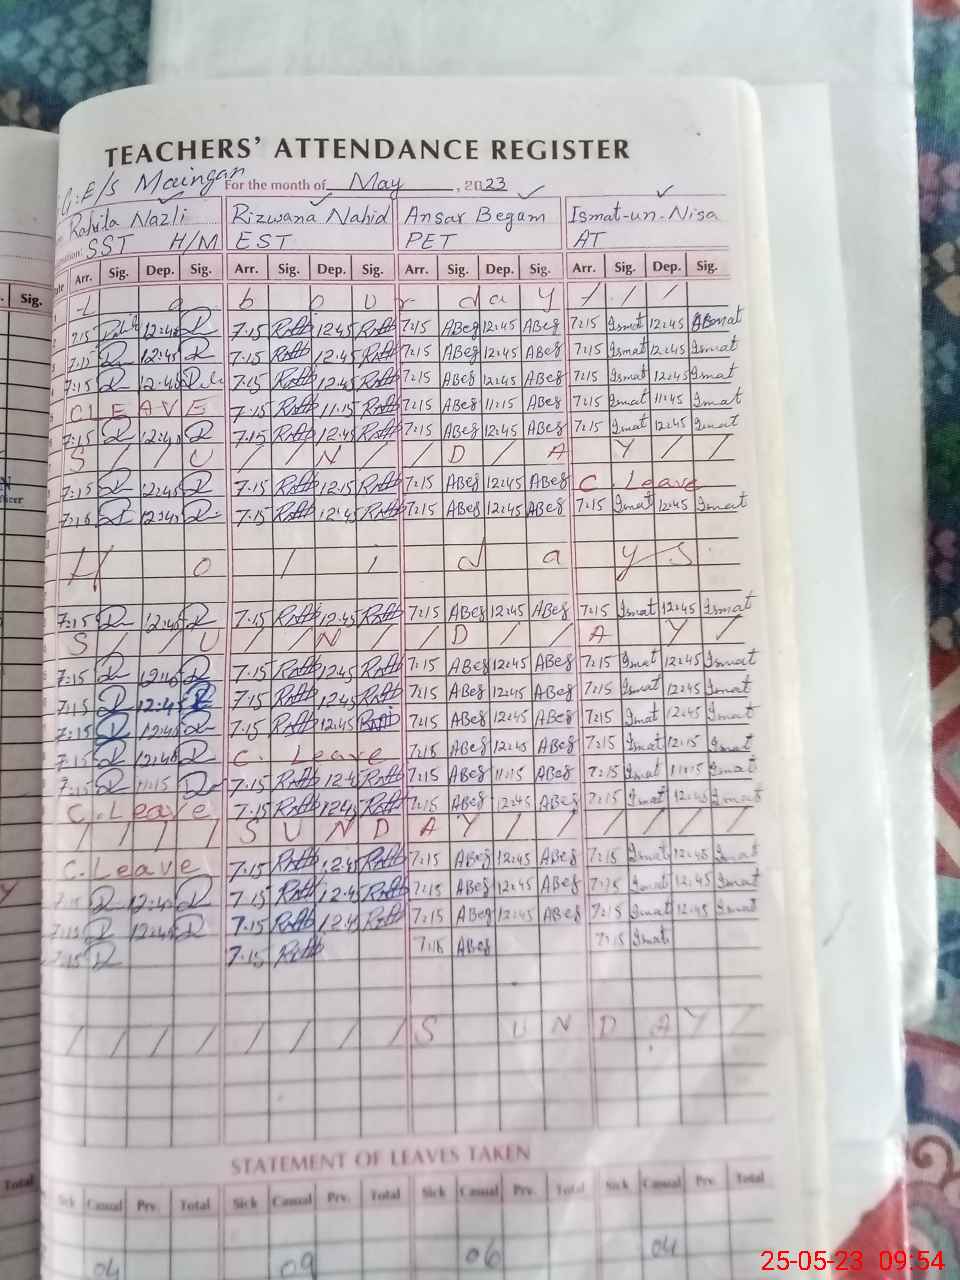 TEACHERS' ATTENDANCE REGISTER
G.E/S Maingan For the month of May, 2023
Rahila Nazli Rizwana Nahid Ansar Begam Ismat-un-Nisa
SST H/M EST PET AT
Sig. Arr. Sig. Dep. Sig. Arr. Sig. Dep. Sig. Arr. Sig. Dep. Sig. Arr. Sig. Dep. Sig.
L a b o u r d a y / / /
7:15 12:45 7:15 12:45 7:15 ABeg 12:45 ABeg 7:15 Ismat 12:45 Ismat
7:15 12:45 7:15 12:45 7:15 ABeg 12:45 ABeg 7:15 Ismat 12:45 Ismat
7:15 12:45 7:15 12:45 7:15 ABeg 12:45 ABeg 7:15 Ismat 12:45 Ismat
C LEAVE 7:15 11:15 7:15 ABeg 11:15 ABeg 7:15 Ismat 11:45 Ismat
7:15 12:45 7:15 12:45 7:15 ABeg 12:45 ABeg 7:15 Ismat 12:45 Ismat
S / / U / / N / / D / A Y / /
7:15 12:45 7:15 12:15 7:15 ABeg 12:45 ABeg C. Leave
7:15 12:45 7:15 12:45 7:15 ABeg 12:45 ABeg 7:15 Ismat 12:45 Ismat
H o l i d a y s
7:15 12:45 7:15 12:45 7:15 ABeg 12:45 ABeg 7:15 Ismat 12:45 Ismat
S / / U / / N / / D / / A Y /
7:15 12:45 7:15 12:45 7:15 ABeg 12:45 ABeg 7:15 Ismat 12:45 Ismat
7:15 12:45 7:15 12:45 7:15 ABeg 12:45 ABeg 7:15 Ismat 12:45 Ismat
7:15 12:45 7:15 12:45 7:15 ABeg 12:45 ABeg 7:15 Ismat 12:45 Ismat
7:15 12:45 C. Leave 7:15 ABeg 12:45 ABeg 7:15 Ismat 12:15 Ismat
7:15 11:15 7:15 12:45 7:15 ABeg 11:15 ABeg 7:15 Ismat 11:15 Ismat
C. Leave 7:15 12:45 7:15 ABeg 12:45 ABeg 7:15 Ismat 12:45 Ismat
/ / / / S U N D A Y / / / / / /
C. Leave 7:15 12:45 7:15 ABeg 12:45 ABeg 7:15 Ismat 12:45 Ismat
7:15 12:45 7:15 12:45 7:15 ABeg 12:45 ABeg 7:15 Ismat 12:45 Ismat
7:15 12:45 7:15 12:45 7:15 ABeg 12:45 ABeg 7:15 Ismat 12:45 Ismat
7:15 7:15 7:15 ABeg 7:15 Ismat
/ / / / / / / / S U N D A Y /
STATEMENT OF LEAVES TAKEN
Total Sick Casual Prv. Total Sick Casual Prv. Total Sick Casual Prv. Total Sick Casual Prv. Total
04 09 06 04
25-05-23 09:54